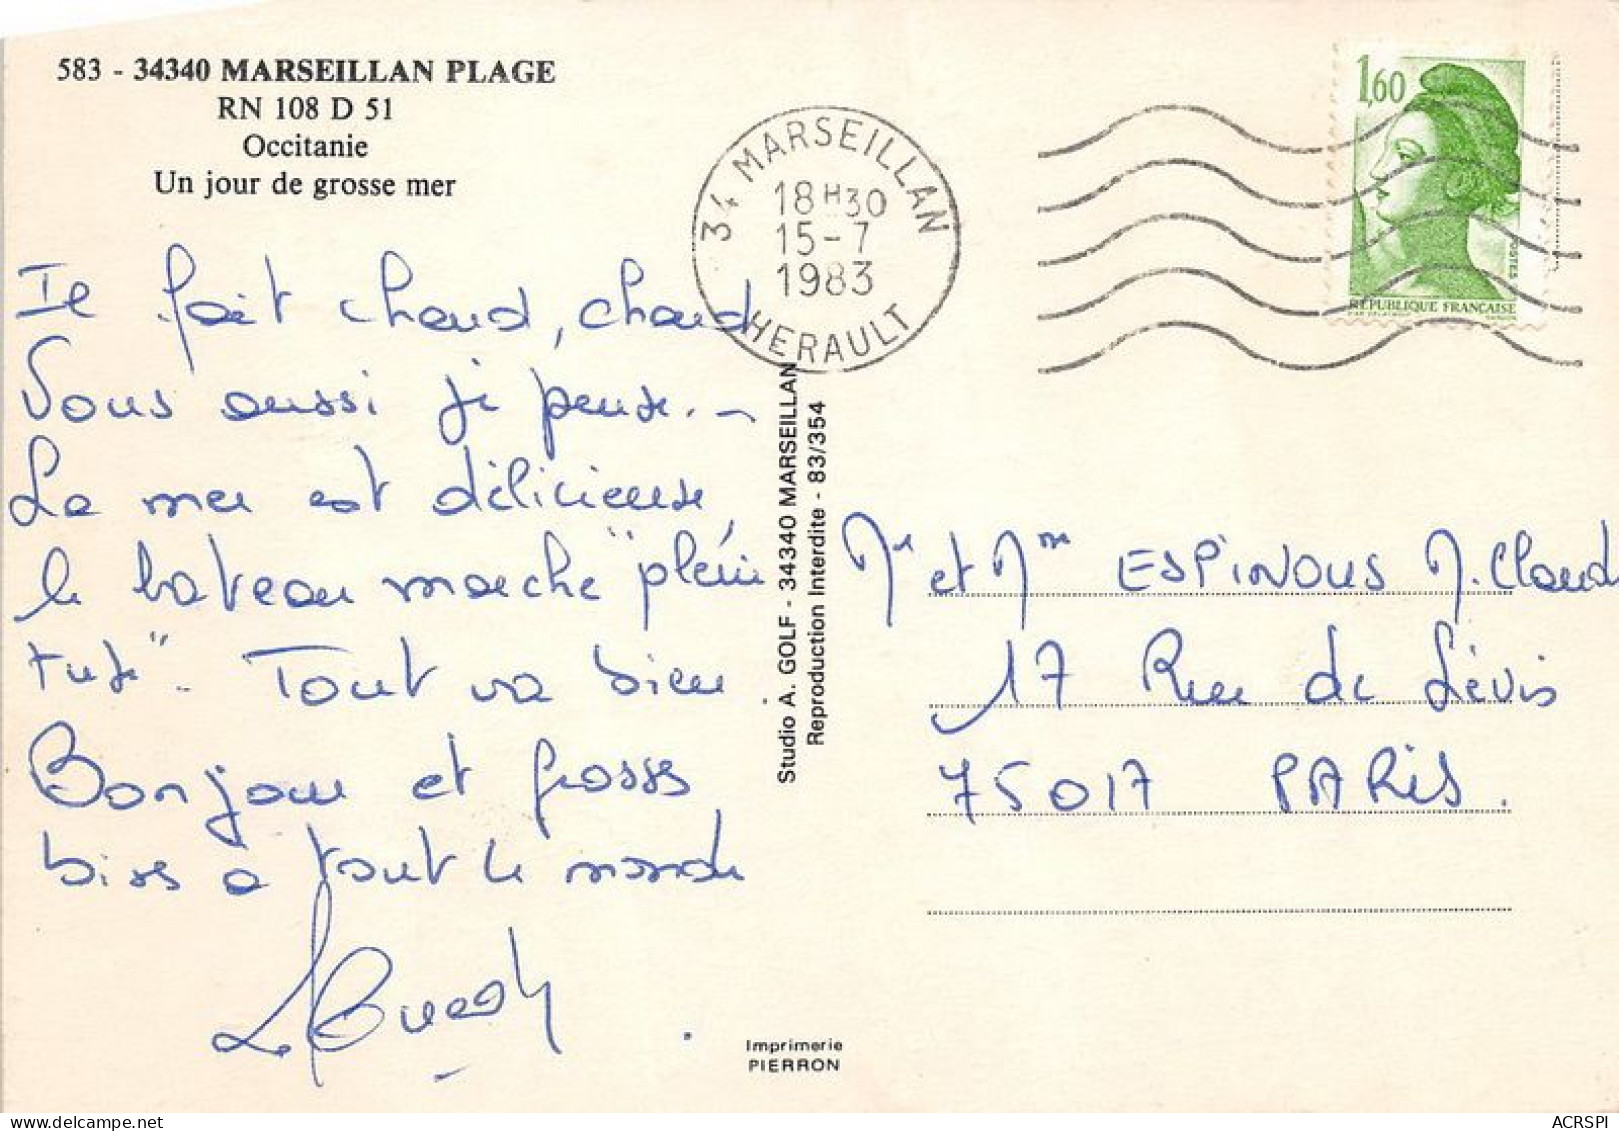 583 - 34340 MARSEILLAN PLAGE
RN 108 D 51
Occitanie
Un jour de grosse mer
34 MARSEILLAN
18H30
15-7
1983
HERAULT
1,60
POSTES
REPUBLIQUE FRANÇAISE
Il fait chaud, chaud
Vous aussi je pense. -
La mer est délicieuse,
le bateau marche "plein
tube". Tout va bien
Bonjour et grosses
bises à tout le monde
Studio A. GOLF - 34340 MARSEILLAN
Reproduction Interdite - 83/354
Mr et Mme ESPINOUS J. Claud
17 Rue de Lévis
75017 PARIS.
Imprimerie
PIERRON
ACRSPI